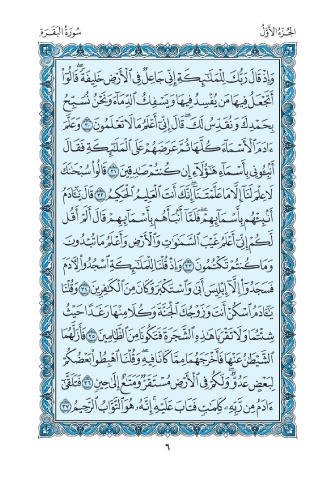 الجُزءُ الأَوَّلُ سُورَةُ البَقَرَةِ
وَإِذْ قَالَ رَبُّكَ لِلْمَلَٰٓئِكَةِ إِنِّى جَاعِلٌ فِى ٱلْأَرْضِ خَلِيفَةً ۖ قَالُوٓا۟
أَتَجْعَلُ فِيهَا مَن يُفْسِدُ فِيهَا وَيَسْفِكُ ٱلدِّمَآءَ وَنَحْنُ نُسَبِّحُ
بِحَمْدِكَ وَنُقَدِّسُ لَكَ ۖ قَالَ إِنِّىٓ أَعْلَمُ مَا لَا تَعْلَمُونَ ٣٠ وَعَلَّمَ
ءَادَمَ ٱلْأَسْمَآءَ كُلَّهَا ثُمَّ عَرَضَهُمْ عَلَى ٱلْمَلَٰٓئِكَةِ فَقَالَ
أَنۢبِـُٔونِى بِأَسْمَآءِ هَٰٓؤُلَآءِ إِن كُنتُمْ صَٰدِقِينَ ٣١ قَالُوا۟ سُبْحَٰنَكَ
لَا عِلْمَ لَنَآ إِلَّا مَا عَلَّمْتَنَآ ۖ إِنَّكَ أَنتَ ٱلْعَلِيمُ ٱلْحَكِيمُ ٣٢ قَالَ يَٰٓـَٔادَمُ
أَنۢبِئْهُم بِأَسْمَآئِهِمْ ۖ فَلَمَّآ أَنۢبَأَهُم بِأَسْمَآئِهِمْ قَالَ أَلَمْ أَقُل
لَّكُمْ إِنِّىٓ أَعْلَمُ غَيْبَ ٱلسَّمَٰوَٰتِ وَٱلْأَرْضِ وَأَعْلَمُ مَا تُبْدُونَ
وَمَا كُنتُمْ تَكْتُمُونَ ٣٣ وَإِذْ قُلْنَا لِلْمَلَٰٓئِكَةِ ٱسْجُدُوا۟ لِءَادَمَ
فَسَجَدُوٓا۟ إِلَّآ إِبْلِيسَ أَبَىٰ وَٱسْتَكْبَرَ وَكَانَ مِنَ ٱلْكَٰفِرِينَ ٣٤ وَقُلْنَا
يَٰٓـَٔادَمُ ٱسْكُنْ أَنتَ وَزَوْجُكَ ٱلْجَنَّةَ وَكُلَا مِنْهَا رَغَدًا حَيْثُ
شِئْتُمَا وَلَا تَقْرَبَا هَٰذِهِ ٱلشَّجَرَةَ فَتَكُونَا مِنَ ٱلظَّٰلِمِينَ ٣٥ فَأَزَلَّهُمَا
ٱلشَّيْطَٰنُ عَنْهَا فَأَخْرَجَهُمَا مِمَّا كَانَا فِيهِ ۖ وَقُلْنَا ٱهْبِطُوا۟ بَعْضُكُمْ
لِبَعْضٍ عَدُوٌّ ۖ وَلَكُمْ فِى ٱلْأَرْضِ مُسْتَقَرٌّ وَمَتَٰعٌ إِلَىٰ حِينٍ ٣٦ فَتَلَقَّىٰٓ
ءَادَمُ مِن رَّبِّهِۦ كَلِمَٰتٍ فَتَابَ عَلَيْهِ ۚ إِنَّهُۥ هُوَ ٱلتَّوَّابُ ٱلرَّحِيمُ ٣٧
٦